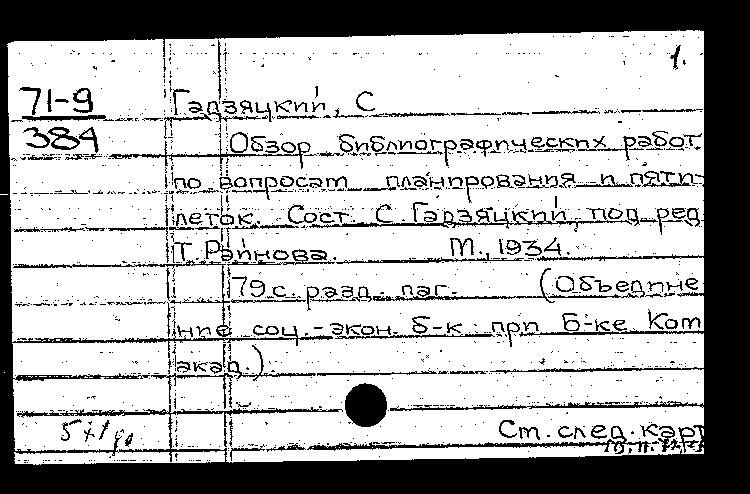 1.
71-9 Гадзяцкий, С
384 Обзор библиографических работ
по вопросам планирования и пяти-
леток. Сост. С. Гадзяцкий, под ред
Т. Райнова. М., 1934.
79 с. разд. паг. (Объедине
ние соц.-экон. б-к при Б-ке Ком
акад.)
См. след. карт